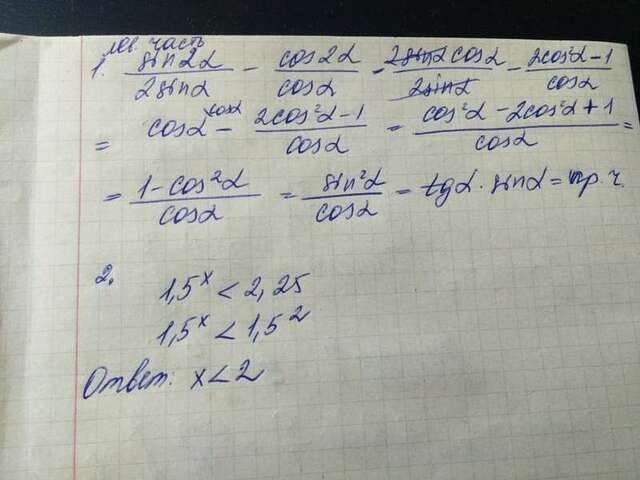 лев. часть
1. sin2α/2sinα - cos2α/cosα = 2sinα cosα/2sinα - 2cos²α-1/cosα
= cosα^cosα - 2cos²α-1/cosα = cos²α-2cos²α+1/cosα =
= 1-cos²α/cosα = sin²α/cosα = tgα · sinα = пр. ч.
2.
1,5ˣ < 2,25
1,5ˣ < 1,5²
Ответ: x<2